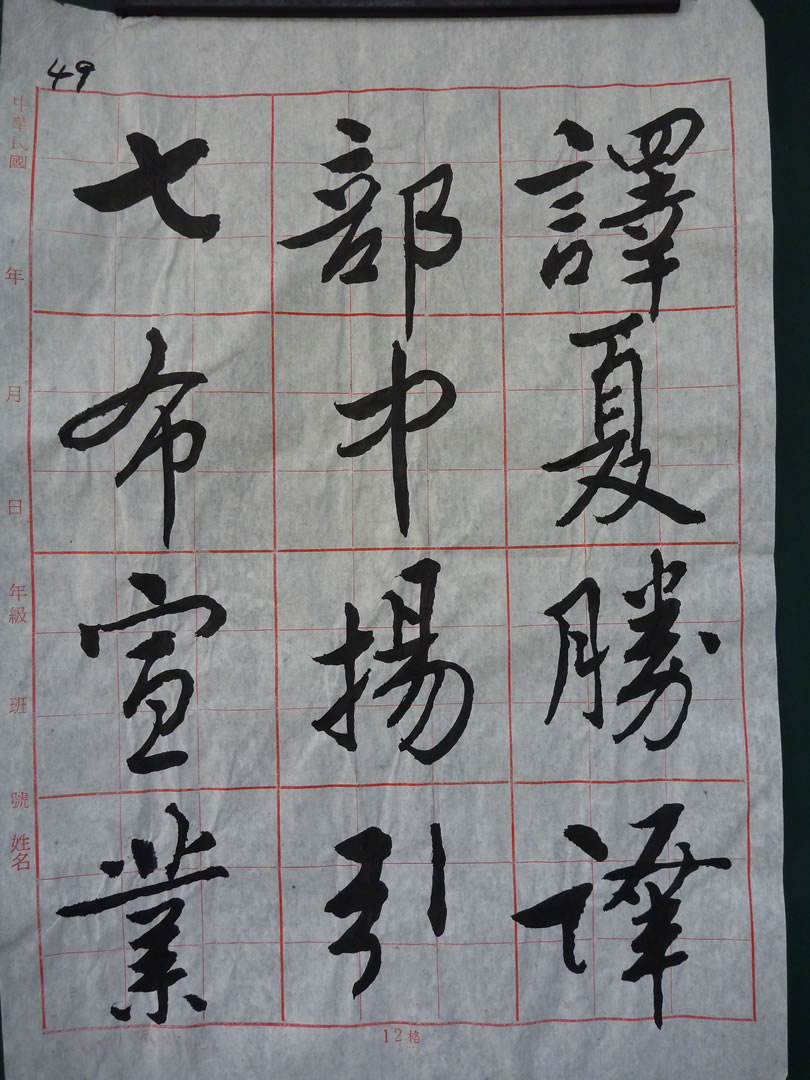 49
七部譯
布中夏
宣揚勝
業引譯
中華民國 年 月 日 年級 班 號 姓名
12格